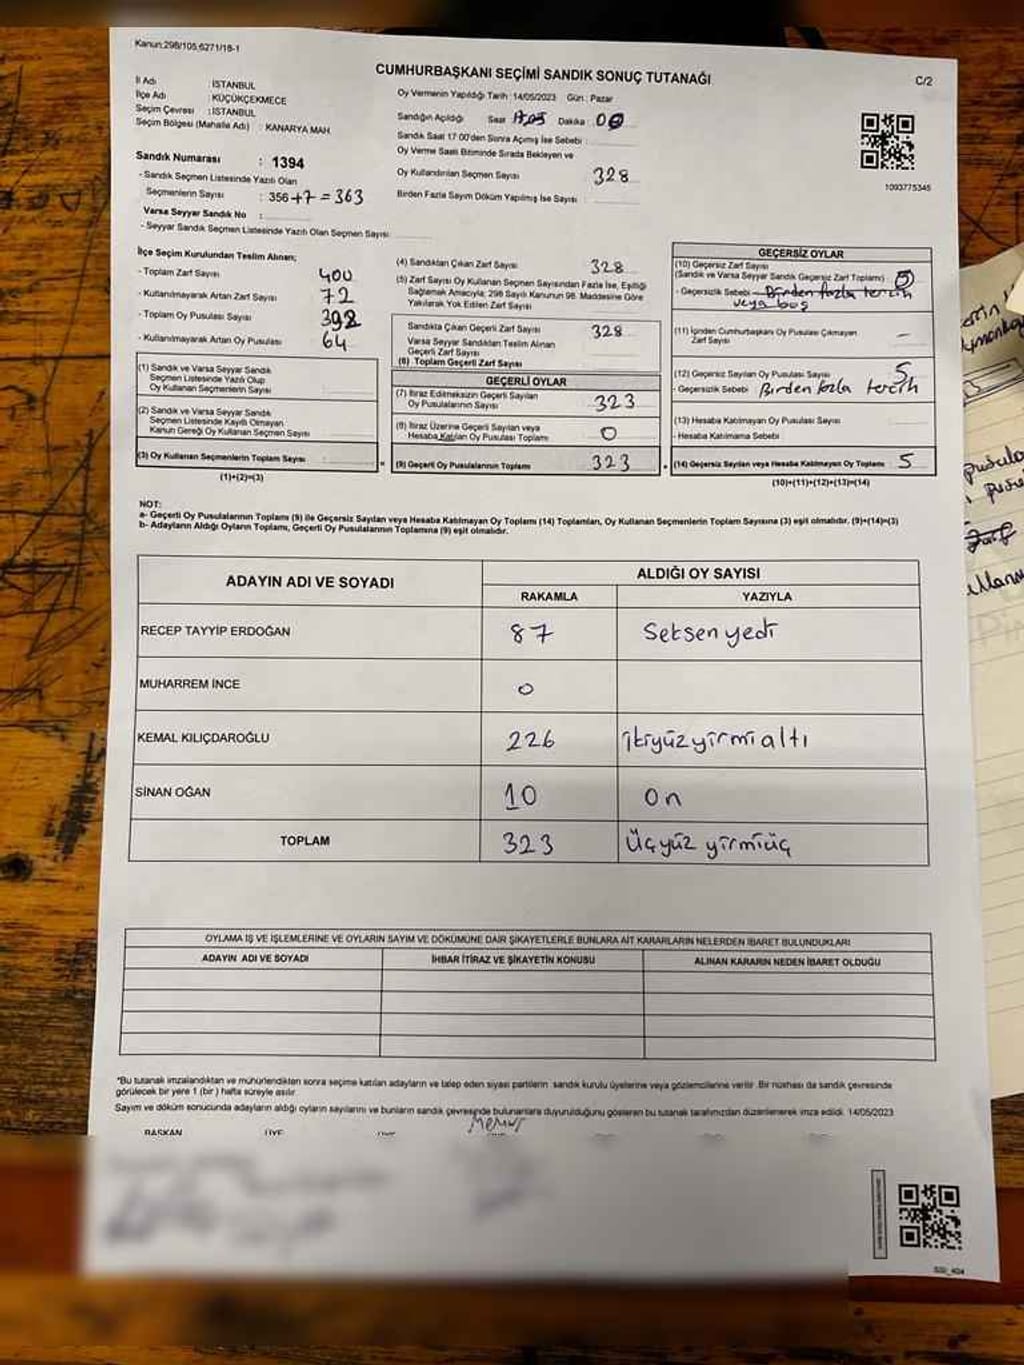 Kanun:298/105,6271/18-1
CUMHURBAŞKANI SEÇİMİ SANDIK SONUÇ TUTANAĞI
C/2
İl Adı : İSTANBUL
İlçe Adı : KÜÇÜKÇEKMECE
Seçim Çevresi : İSTANBUL
Seçim Bölgesi (Mahalle Adı) : KANARYA MAH.
Sandık Numarası : 1394
- Sandık Seçmen Listesinde Yazılı Olan
Seçmenlerin Sayısı : 356 +7 = 363
Varsa Seyyar Sandık No :
- Seyyar Sandık Seçmen Listesinde Yazılı Olan Seçmen Sayısı
Oy Vermenin Yapıldığı Tarih :14/05/2023 Gün : Pazar
Sandığın Açıldığı Saat Dakika
Sandık Saat 17:00'den Sonra Açımış İse Sebebi :
Oy Verme Saati Bitiminde Sırada Bekleyen ve
Oy Kullandırılan Seçmen Sayısı 328
Birden Fazla Sayım Döküm Yapılmış İse Sayısı
1093775345
İlçe Seçim Kurulundan Teslim Alınan;
- Toplam Zarf Sayısı 400
- Kullanılmayarak Artan Zarf Sayısı 72
- Toplam Oy Pusulası Sayısı 392
- Kullanılmayarak Artan Oy Pusulası 64
(1) Sandık ve Varsa Seyyar Sandık
Seçmen Listesinde Yazılı Olup
Oy Kullanan Seçmenlerin Sayısı
(2) Sandık ve Varsa Seyyar Sandık
Seçmen Listesinde Kayıtlı Olmayan
Kanun Gereği Oy Kullanan Seçmen Sayısı
(3) Oy Kullanan Seçmenlerin Toplam Sayısı =
(1)+(2)=(3)
(4) Sandıktan Çıkan Zarf Sayısı 328
(5) Zarf Sayısı Oy Kullanan Seçmen Sayısından Fazla İse, Eşitliği
Sağlamak Amacıyla; 298 Sayılı Kanunun 98. Maddesine Göre
Yakılarak Yok Edilen Zarf Sayısı
Sandıkta Çıkan Geçerli Zarf Sayısı 328
Varsa Seyyar Sandıktan Teslim Alınan
Geçerli Zarf Sayısı
(6) Toplam Geçerli Zarf Sayısı
GEÇERLİ OYLAR
(7) İtiraz Edilmeksizin Geçerli Sayılan
Oy Pusulalarının Sayısı 323
(8) İtiraz Üzerine Geçerli Sayılan veya
Hesaba Katılan Oy Pusulası Toplamı 0
(9) Geçerli Oy Pusulalarının Toplamı 323
GEÇERSİZ OYLAR
(10) Geçersiz Zarf Sayısı
(Sandık ve Varsa Seyyar Sandık Geçersiz Zarf Toplamı)
- Geçersizlik Sebebi Birden fazla tercih
veya boş
(11) İçinden Cumhurbaşkanı Oy Pusulası Çıkmayan
Zarf Sayısı –
(12) Geçersiz Sayılan Oy Pusulası Sayısı 5
- Geçersizlik Sebebi Birden fazla tercih
(13) Hesaba Katılmayan Oy Pusulası Sayısı
- Hesaba Katılmama Sebebi
(14) Geçersiz Sayılan veya Hesaba Katılmayan Oy Toplamı 5
(10)+(11)+(12)+(13)=(14)
NOT:
a- Geçerli Oy Pusulalarının Toplamı (9) ile Geçersiz Sayılan veya Hesaba Katılmayan Oy Toplamı (14) Toplamları, Oy Kullanan Seçmenlerin Toplam Sayısına (3) eşit olmalıdır. (9)+(14)=(3)
b- Adayların Aldığı Oyların Toplamı, Geçerli Oy Pusulalarının Toplamına (9) eşit olmalıdır.
ADAYIN ADI VE SOYADI
ALDIĞI OY SAYISI
RAKAMLA YAZIYLA
RECEP TAYYİP ERDOĞAN 87 Seksenyedi
MUHARREM İNCE 0
KEMAL KILIÇDAROĞLU 226 ikiyüzyirmialtı
SİNAN OĞAN 10 On
TOPLAM 323 Üçyüz yirmiüç
OYLAMA İŞ VE İŞLEMLERİNE VE OYLARIN SAYIM VE DÖKÜMÜNE DAİR ŞİKAYETLERLE BUNLARA AİT KARARLARIN NELERDEN İBARET BULUNDUKLARI
ADAYIN ADI VE SOYADI İHBAR İTİRAZ VE ŞİKAYETİN KONUSU ALINAN KARARIN NEDEN İBARET OLDUĞU
*Bu tutanak imzalandıktan ve mühürlendikten sonra seçime katılan adayların ve talep eden siyasi partilerin sandık kurulu üyelerine veya gözlemcilerine verilir. Bir nüshası da sandık çevresinde
görülecek bir yere 1 (bir) hafta süreyle asılır.
Sayım ve döküm sonucunda adayların aldığı oyların sayılarını ve bunların sandık çevresinde bulunanlara duyurulduğunu gösteren bu tutanak tarafımızdan düzenlenerek imza edildi. 14/05/2023
Memur
BAŞKAN ÜYE